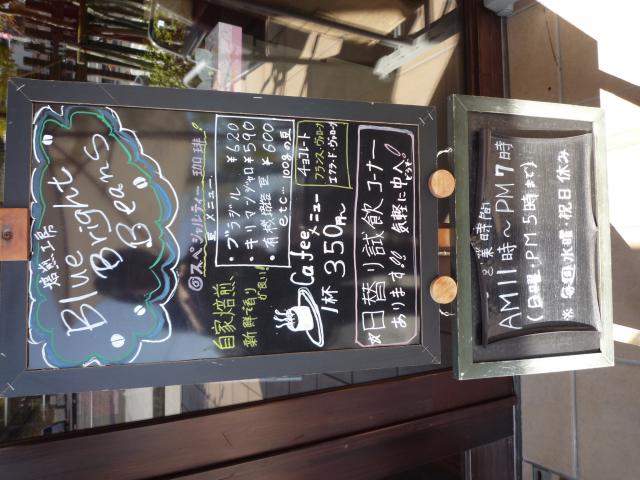 焙煎工房
Blue
Bright
Beans
◎スペシャルティー珈琲!
豆メニュー
・ブラジル ¥620
・キリマンジャロ ¥590
・有機栽培豆 ¥600
etc… 100gの豆
自家焙煎、
新鮮で香り
が良い!!
Cafeeメニュー
1杯 350円〜
チョコレート
フランス・ヴァローナ
エクアドル・ヴァローナ
☆日替り試飲コーナー
あります!!! 気軽に中へ
どうぞ
営業時間
AM11時〜PM7時
(日曜、PM5時まで)
※ 毎週水曜 祝日休み